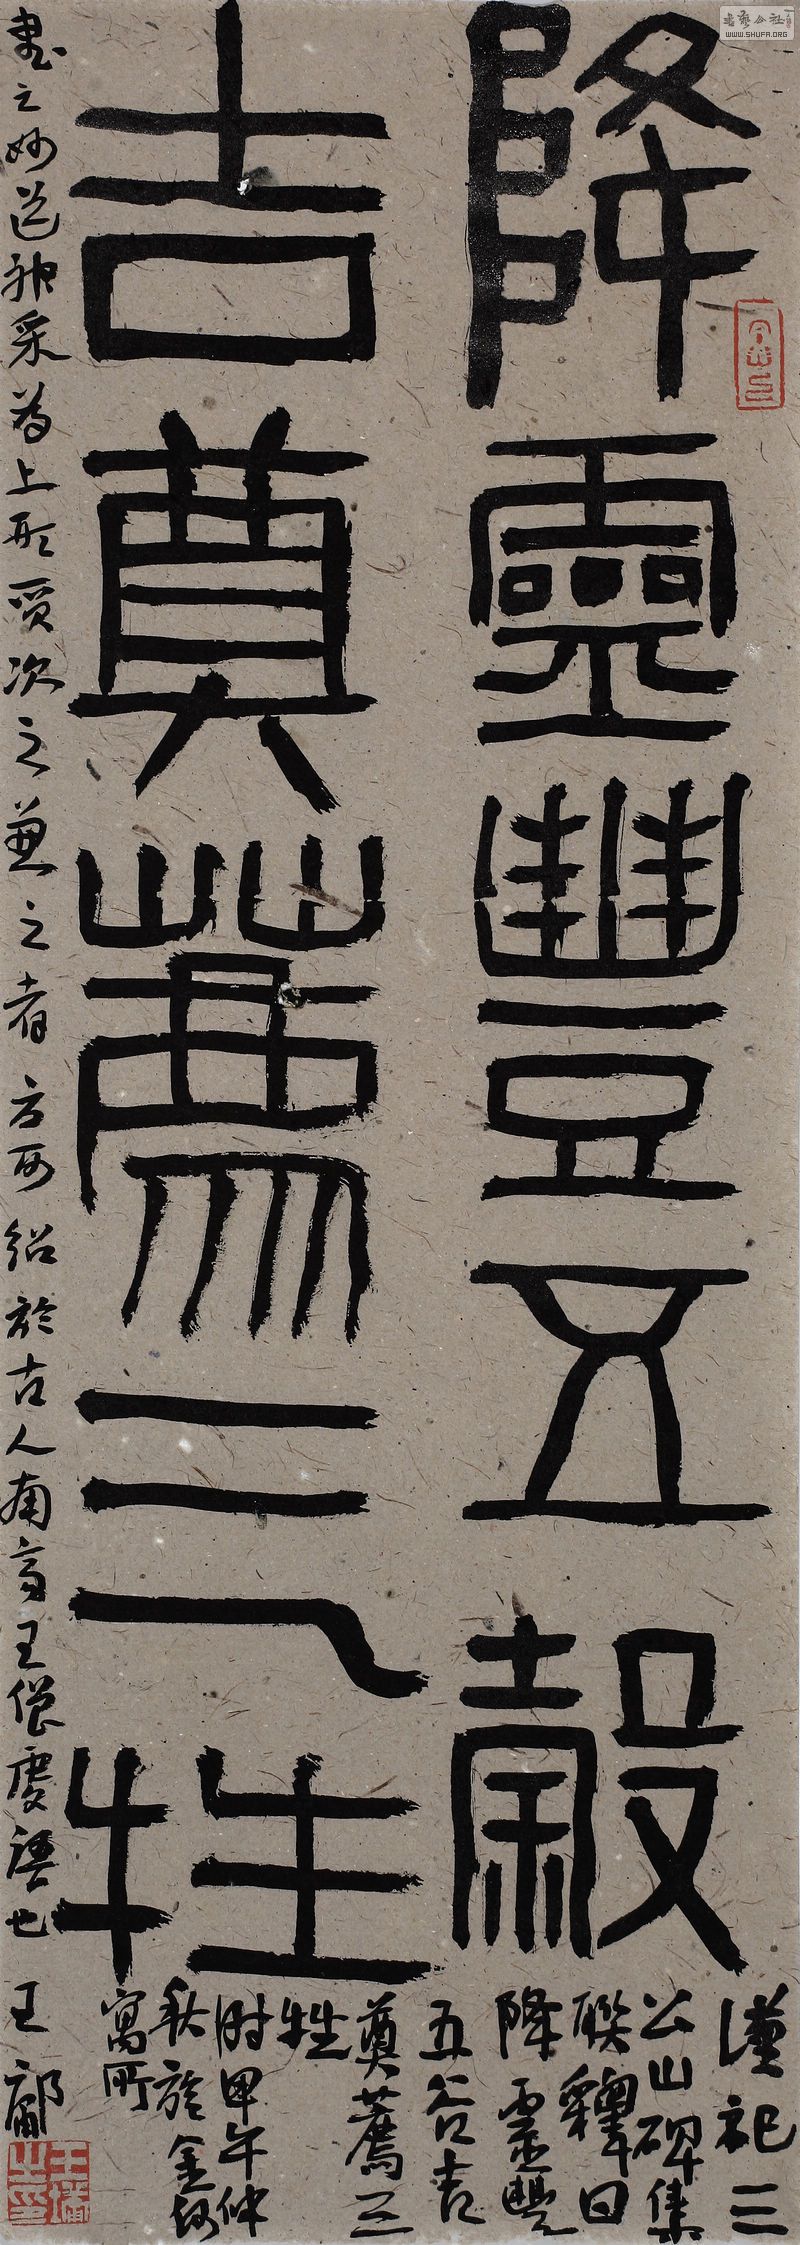 降靈豐五穀
吉奠薦三牲
漢祀三
公山碑集
聯釋曰
降靈豐
五谷吉
奠薦三
牲
時甲午仲
秋於金城
寓所
書之妙道神采為上形質次之兼之者方可紹於古人南齊王僧虔語也
王鄘
書藝公社
WWW.SHUFA.ORG